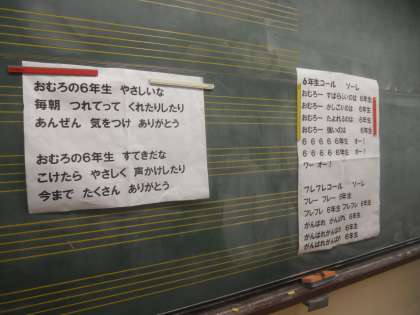 おむろの6年生 やさしいな
毎朝 つれてって くれたりしたり
あんぜん 気をつけ ありがとう
おむろの6年生 すてきだな
こけたら やさしく 声かけしたり
今まで たくさん ありがとう
6年生コール ソーレ
おむろー すばらしいのは 6年生
おむろー かしこいのは 6年生
おむろー たよれるのは 6年生
おむろー 強いのは 6年生
6 6 6 6 6年生 オー!
6 6 6 6 6年生 オー!
ワー オー!
フレフレコール ソーレ
フレー フレー 6年生
フレフレ 6年生 フレフレ 6年生
がんばれ がんばれ 6年生
がんばれがんばれ 6年生